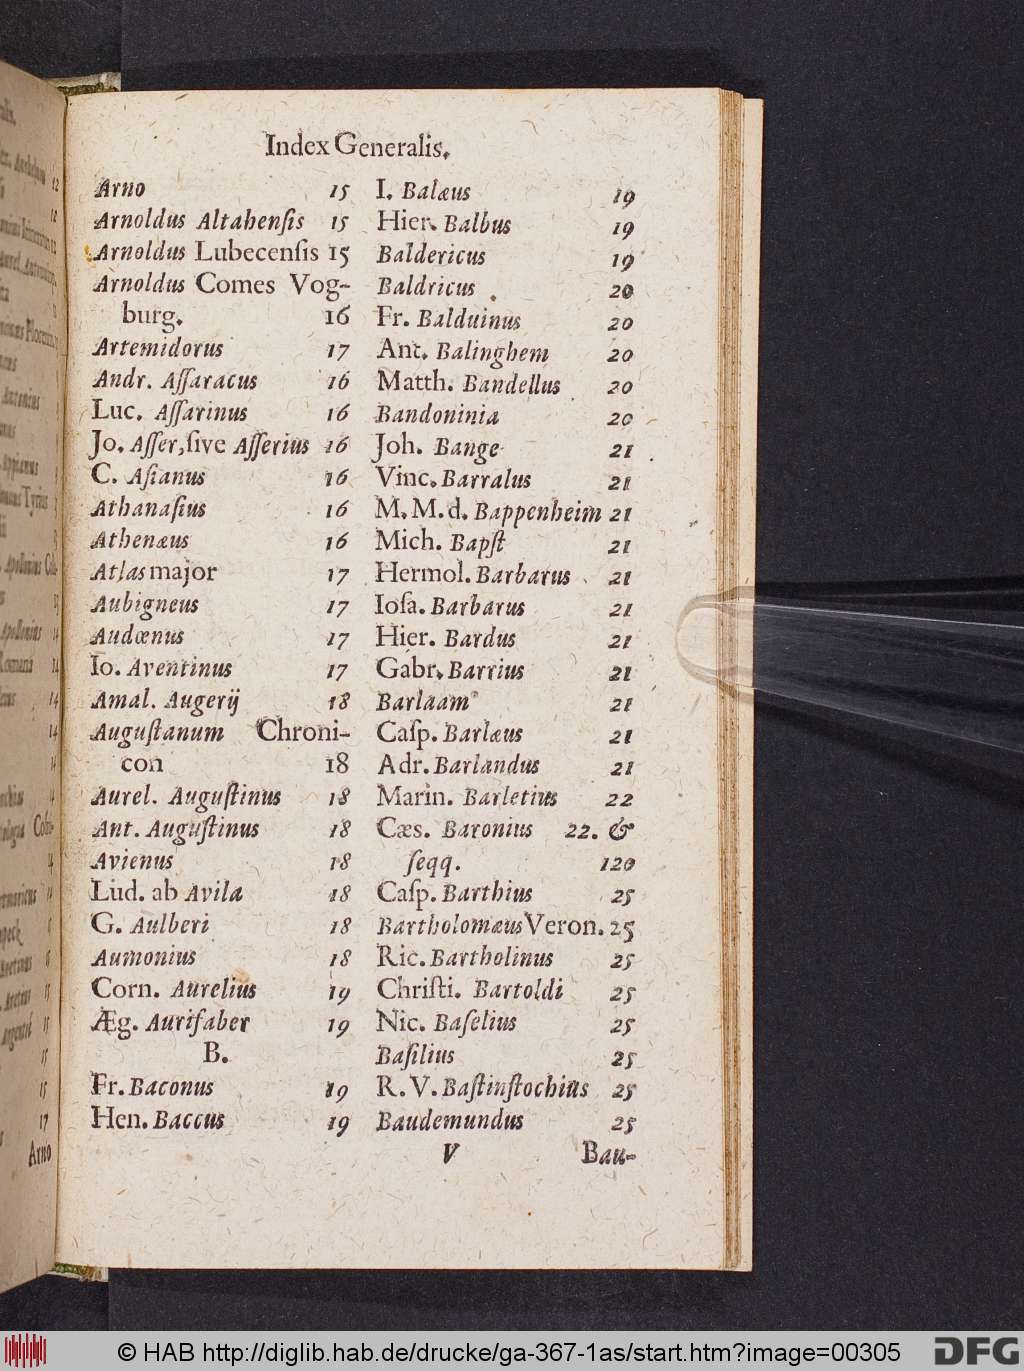 Index Generalis.
Arno 15
Arnoldus Altahenſis 15
Arnoldus Lubecenſis 15
Arnoldus Comes Vog-
burg. 16
Artemidorus 17
Andr. Aſſaracus 16
Luc. Aſſarinus 16
Jo. Aſſer, ſive Aſſerius 16
C. Aſianus 16
Athanaſius 16
Athenæus 16
Atlas major 17
Aubigneus 17
Audœnus 17
Io. Aventinus 17
Amal. Augerij 18
Auguſtanum Chroni-
con 18
Aurel. Auguſtinus 18
Ant. Auguſtinus 18
Avienus 18
Lud. ab Avila 18
G. Aulberi 18
Aumonius 18
Corn. Aurelius 19
Æg. Aurifaber 19
B.
Fr. Baconus 19
Hen. Baccus 19
I. Balæus 19
Hier. Balbus 19
Baldericus 19
Baldricus 20
Fr. Balduinus 20
Ant. Balinghem 20
Matth. Bandellus 20
Bandoninia 20
Joh. Bange 21
Vinc. Barralus 21
M. M. d. Bappenheim 21
Mich. Bapſt 21
Hermol. Barbarus 21
Ioſa. Barbarus 21
Hier. Bardus 21
Gabr. Barrius 21
Barlaam 21
Caſp. Barlæus 21
Adr. Barlandus 21
Marin. Barletius 22
Cæs. Baronius 22. &
ſeqq. 120
Caſp. Barthius 25
Bartholomæus Veron. 25
Ric. Bartholinus 25
Chriſti. Bartoldi 25
Nic. Baſelius 25
Baſilius 25
R. V. Baſtinſtochius 25
Baudemundus 25
V Bau-
Arno
© HAB http://diglib.hab.de/drucke/ga-367-1as/start.htm?image=00305
DFG